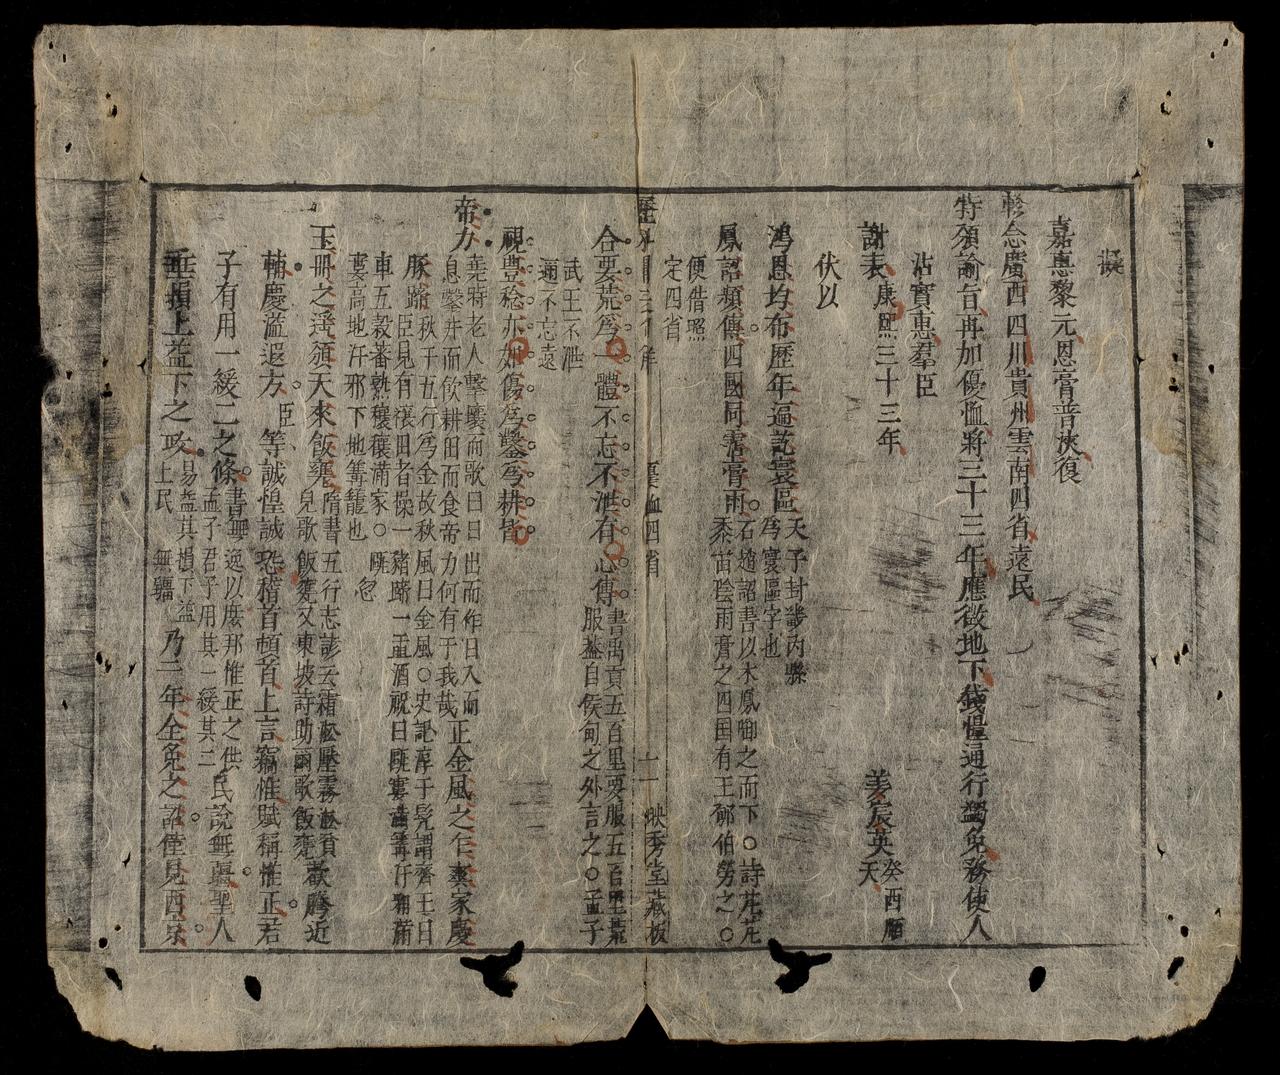 擬
嘉惠黎元恩膏普浹復
軫念廣西四川貴州雲南四省遠民
特頒諭旨再加優恤將三十三年應徵地丁錢糧通行蠲免務使人
沾實惠羣臣
謝表 康熙三十三年 姜宸英 癸酉順天
伏以
鴻恩均布歷年遍訖寰區 天子封畿內縣爲寰區字也
鳳詔頻傳四國同霑膏雨 石趙詔書以木鳳啣之而下○詩芃芃黍苗陰雨膏之四国有王郇伯勞之○
便偕照
定四省
歷科 表
稾 四省
十一 映秀堂藏板
合要荒爲一體不忘不泄有心傳 書禹貢五百里要服五百里荒服葢自侯甸之外言之○孟子
武王不泄
邇不忘遠
視豊稔亦如傷爲鑿爲耕皆
帝力 堯時老人擊壤而歌曰日出而作日入而息鑿井而飲耕田而食帝力何有于我哉 正金風之乍奏家慶
豚蹄 秋于五行爲金故秋風曰金風○史記淳于髠謂齊王曰臣見有禳田者操一豬蹄一盂酒祝曰甌窶滿篝汙邪滿
車五穀蕃熟穰穰滿家○甌
窶高地汙邪下地篝籠也 忽
玉冊之遥頒天來飯甕 隋書五行志諺云霜淞壓霧淞貧兒歌飯甕又東坡詩助爾歌飯甕 歡騰近
輔慶溢遐方臣等誠惶誠恐稽首頓首上言竊惟賦稱惟正若
子有用一緩二之條 書無逸以庶邦惟正之供孟子君子用其一緩其二 民說無疆聖人
垂損上益下之攻 易益其損下益上民 無疆 乃二年全免之詔僅見西京